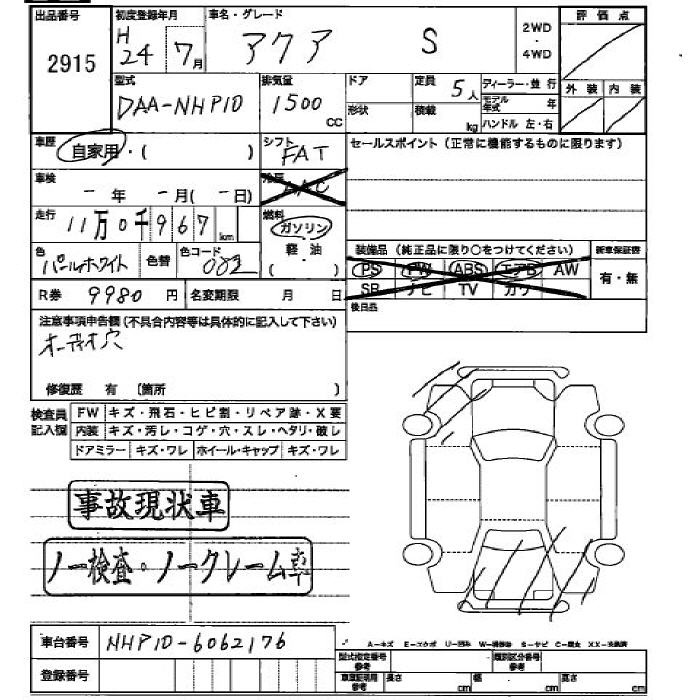 出品番号 初度登録年月 車名・グレード 評価点
2915 H24年7月 アクア S 2WD・4WD
型式 排気量 ドア 定員 5人 ディーラー・並行 外装 内装
DAA-NHP10 1500cc 形状 積載 kg モデル年式 年
ハンドル 左・右
車歴 自家用・( ) シフト FAT セールスポイント(正常に機能するものに限ります)
車検 - 年 - 月(- 日) 冷房 AAC
走行 11万0千967km 燃料 ガソリン
軽油
( )
色 パールホワイト 色替 色コード 装備品(純正品に限り○をつけてください) 新車保証書
PS PW ABS エアB AW 有・無
SR ナビ TV カワ
R券 9980円 名変期限 月 日 後日品
注意事項申告欄(不具合内容等は具体的に記入して下さい)
オーディオ穴
修復歴 有 (箇所 )
検査員記入欄 FW キズ・飛石・ヒビ割・リペア跡・X要
内装 キズ・汚レ・コゲ・穴・スレ・ヘタリ・破レ
ドアミラー キズ・ワレ ホイール・キャップ キズ・ワレ
事故現状車
ノー検査・ノークレーム車
車台番号 NHP10-6062176
A-キズ E-エクボ U-凹み
登録番号
型式指定番号参考 類別区分番号参考
車庫証明用参考 長さ cm 幅 cm 高さ cm